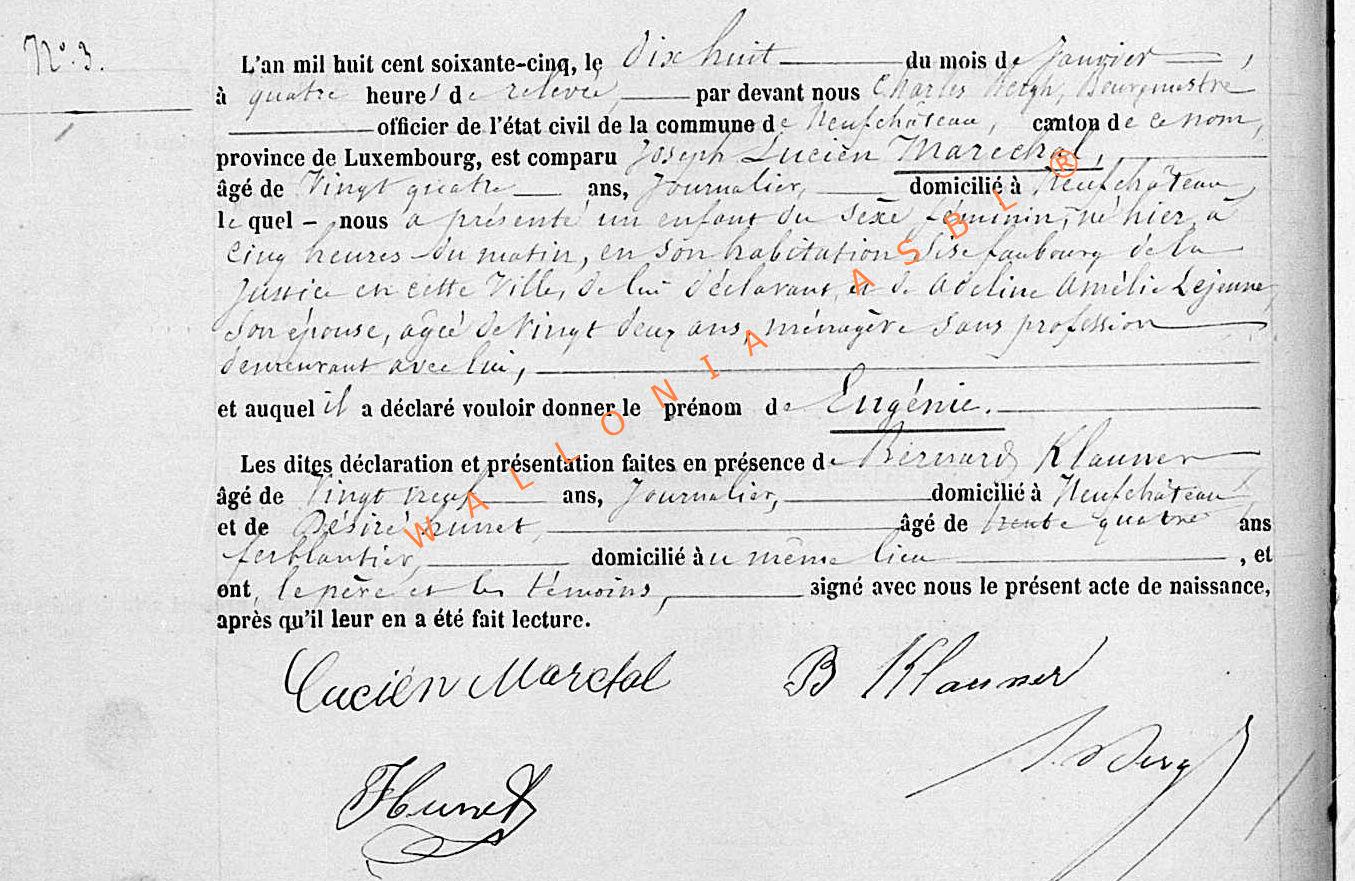 N° 3.
L'an mil huit cent soixante-cinq, le dix huit du mois de Janvier,
à quatre heures de relevée, par devant nous Charles Bergh, Bourgmestre
officier de l'état civil de la commune de Neufchâteau, canton de ce nom,
province de Luxembourg, est comparu Joseph Lucien Marechal,
âgé de Vingt quatre ans, Journalier, domicilié à Neufchâteau,
le quel - nous a présenté un enfant du sexe féminin, né hier, à
cinq heures du matin, en son habitation sise faubourg de la
Justice en cette Ville, de lui déclarant, et de Adeline Amélie Lejeune,
son épouse, agée de vingt deux ans, ménagère sans profession
demeurant avec lui,
et auquel il a déclaré vouloir donner le prénom de Eugénie.
Les dites déclaration et présentation faites en présence de Bernard Klauner
âgé de Vingt neuf ans, Journalier, domicilié à Neufchâteau,
et de Désiré hunet, âgé de trente quatre ans
ferblantier, domicilié àu même lieu, et
ont, le père et les témoins, signé avec nous le présent acte de naissance,
après qu'il leur en a été fait lecture.
Lucién Marechal B Klauner
Hunet
WALLONIA ASBL ®